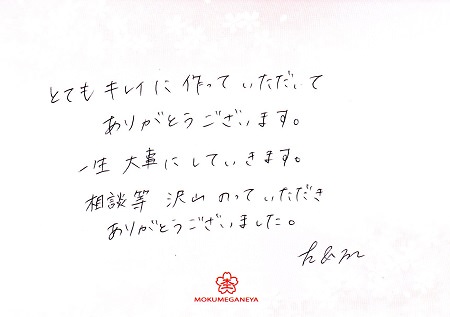 とても キレイに 作って いただいて
ありがとうございます。
一生 大事に していきます。
相談等 沢山 のって いただき
ありがとうございました。
h & m
MOKUMEGANEYA